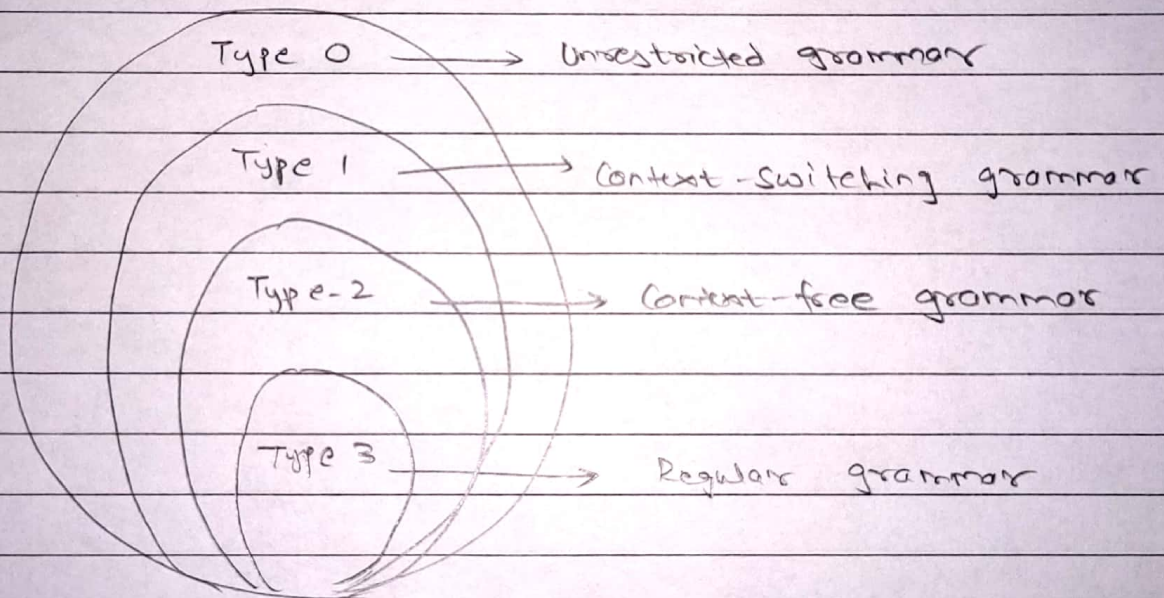 Type 0 → Unrestricted grammar
Type 1 → Context-switching grammar
Type-2 → Context-free grammar
Type 3 → Regular grammar